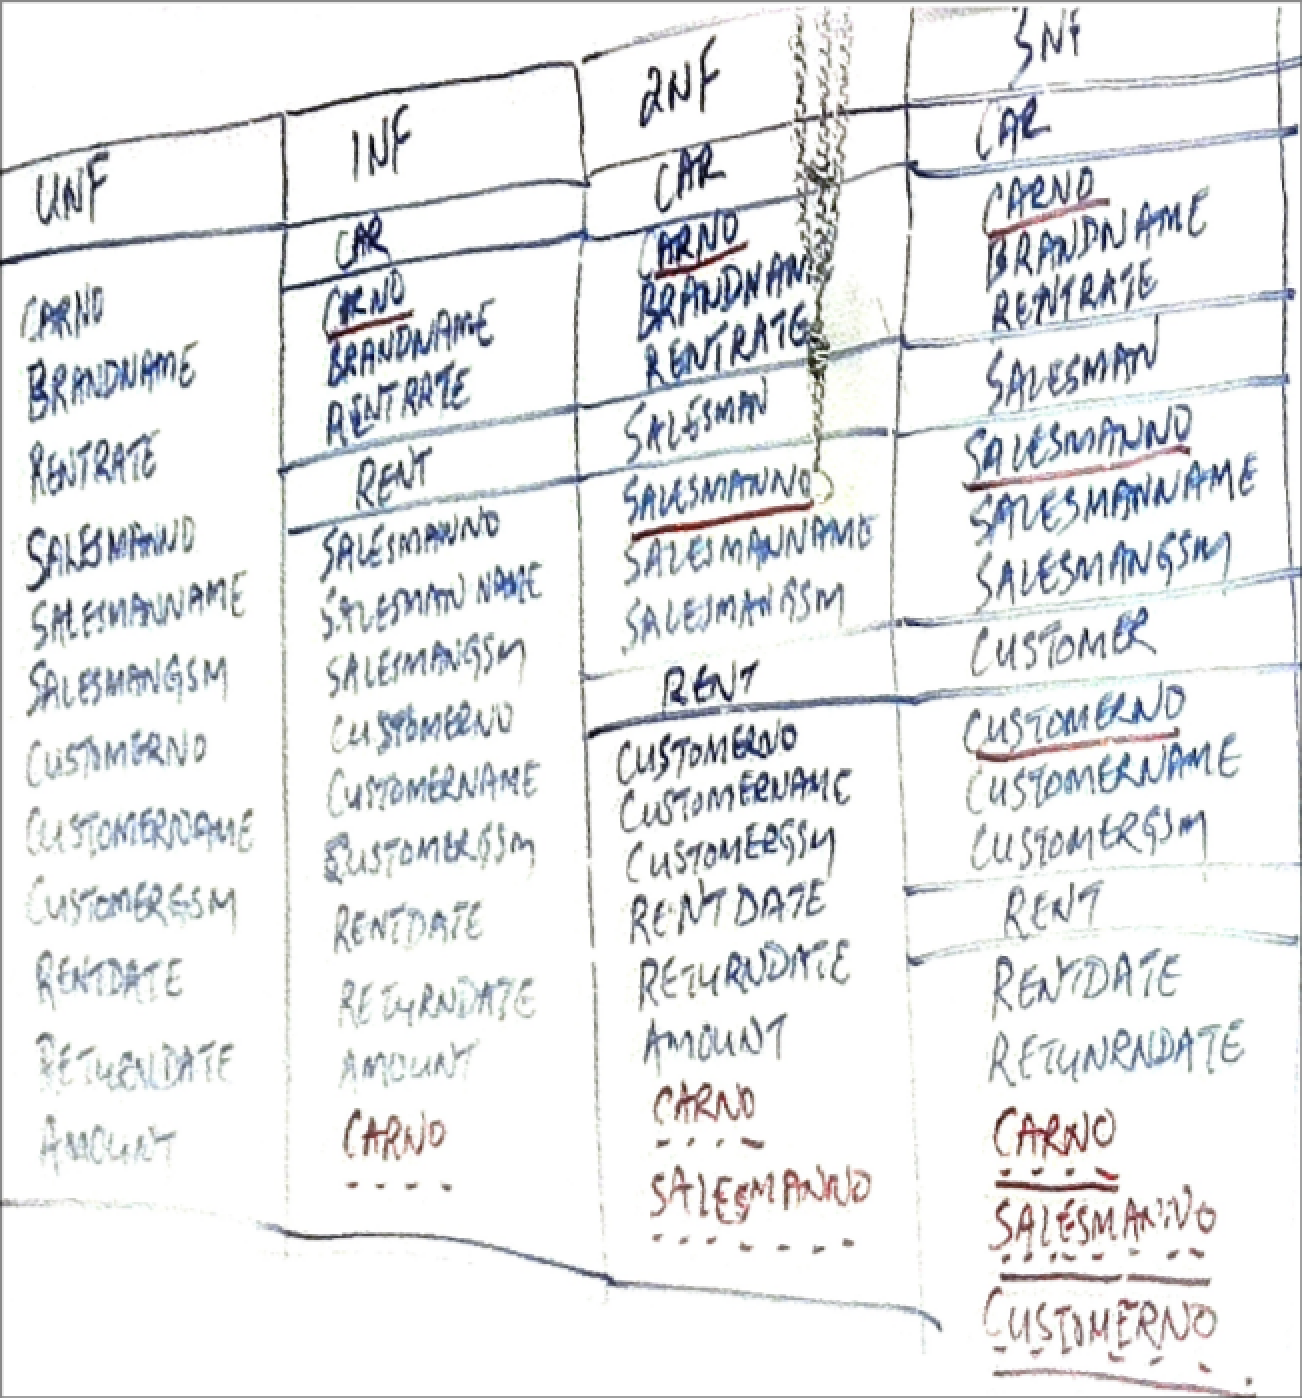 UNF
CARNO
BRANDNAME
RENTRATE
SALESMANNO
SALESMANNAME
SALESMANGSM
CUSTOMERNO
CUSTOMERNAME
CUSTOMERGSM
RENTDATE
RETURNDATE
AMOUNT
1NF
CAR
CARNO
BRANDNAME
RENTRATE
RENT
SALESMANNO
SALESMAN NAME
SALESMANGSM
CUSTOMERNO
CUSTOMERNAME
CUSTOMERGSM
RENTDATE
RETURNDATE
AMOUNT
CARNO
2NF
CAR
CARNO
BRANDNAM
RENTRATE
SALESMAN
SALESMANNO
SALESMANNAME
SALESMANGSM
RENT
CUSTOMERNO
CUSTOMERNAME
CUSTOMERGSM
RENTDATE
RETURNDATE
AMOUNT
CARNO
SALESMANNO
3NF
CAR
CARNO
BRANDNAME
RENTRATE
SALESMAN
SALESMANNO
SALESMANNAME
SALESMANGSM
CUSTOMER
CUSTOMERNO
CUSTOMERNAME
CUSTOMERGSM
RENT
RENTDATE
RETUNRNDATE
CARNO
SALESMANNO
CUSTOMERNO